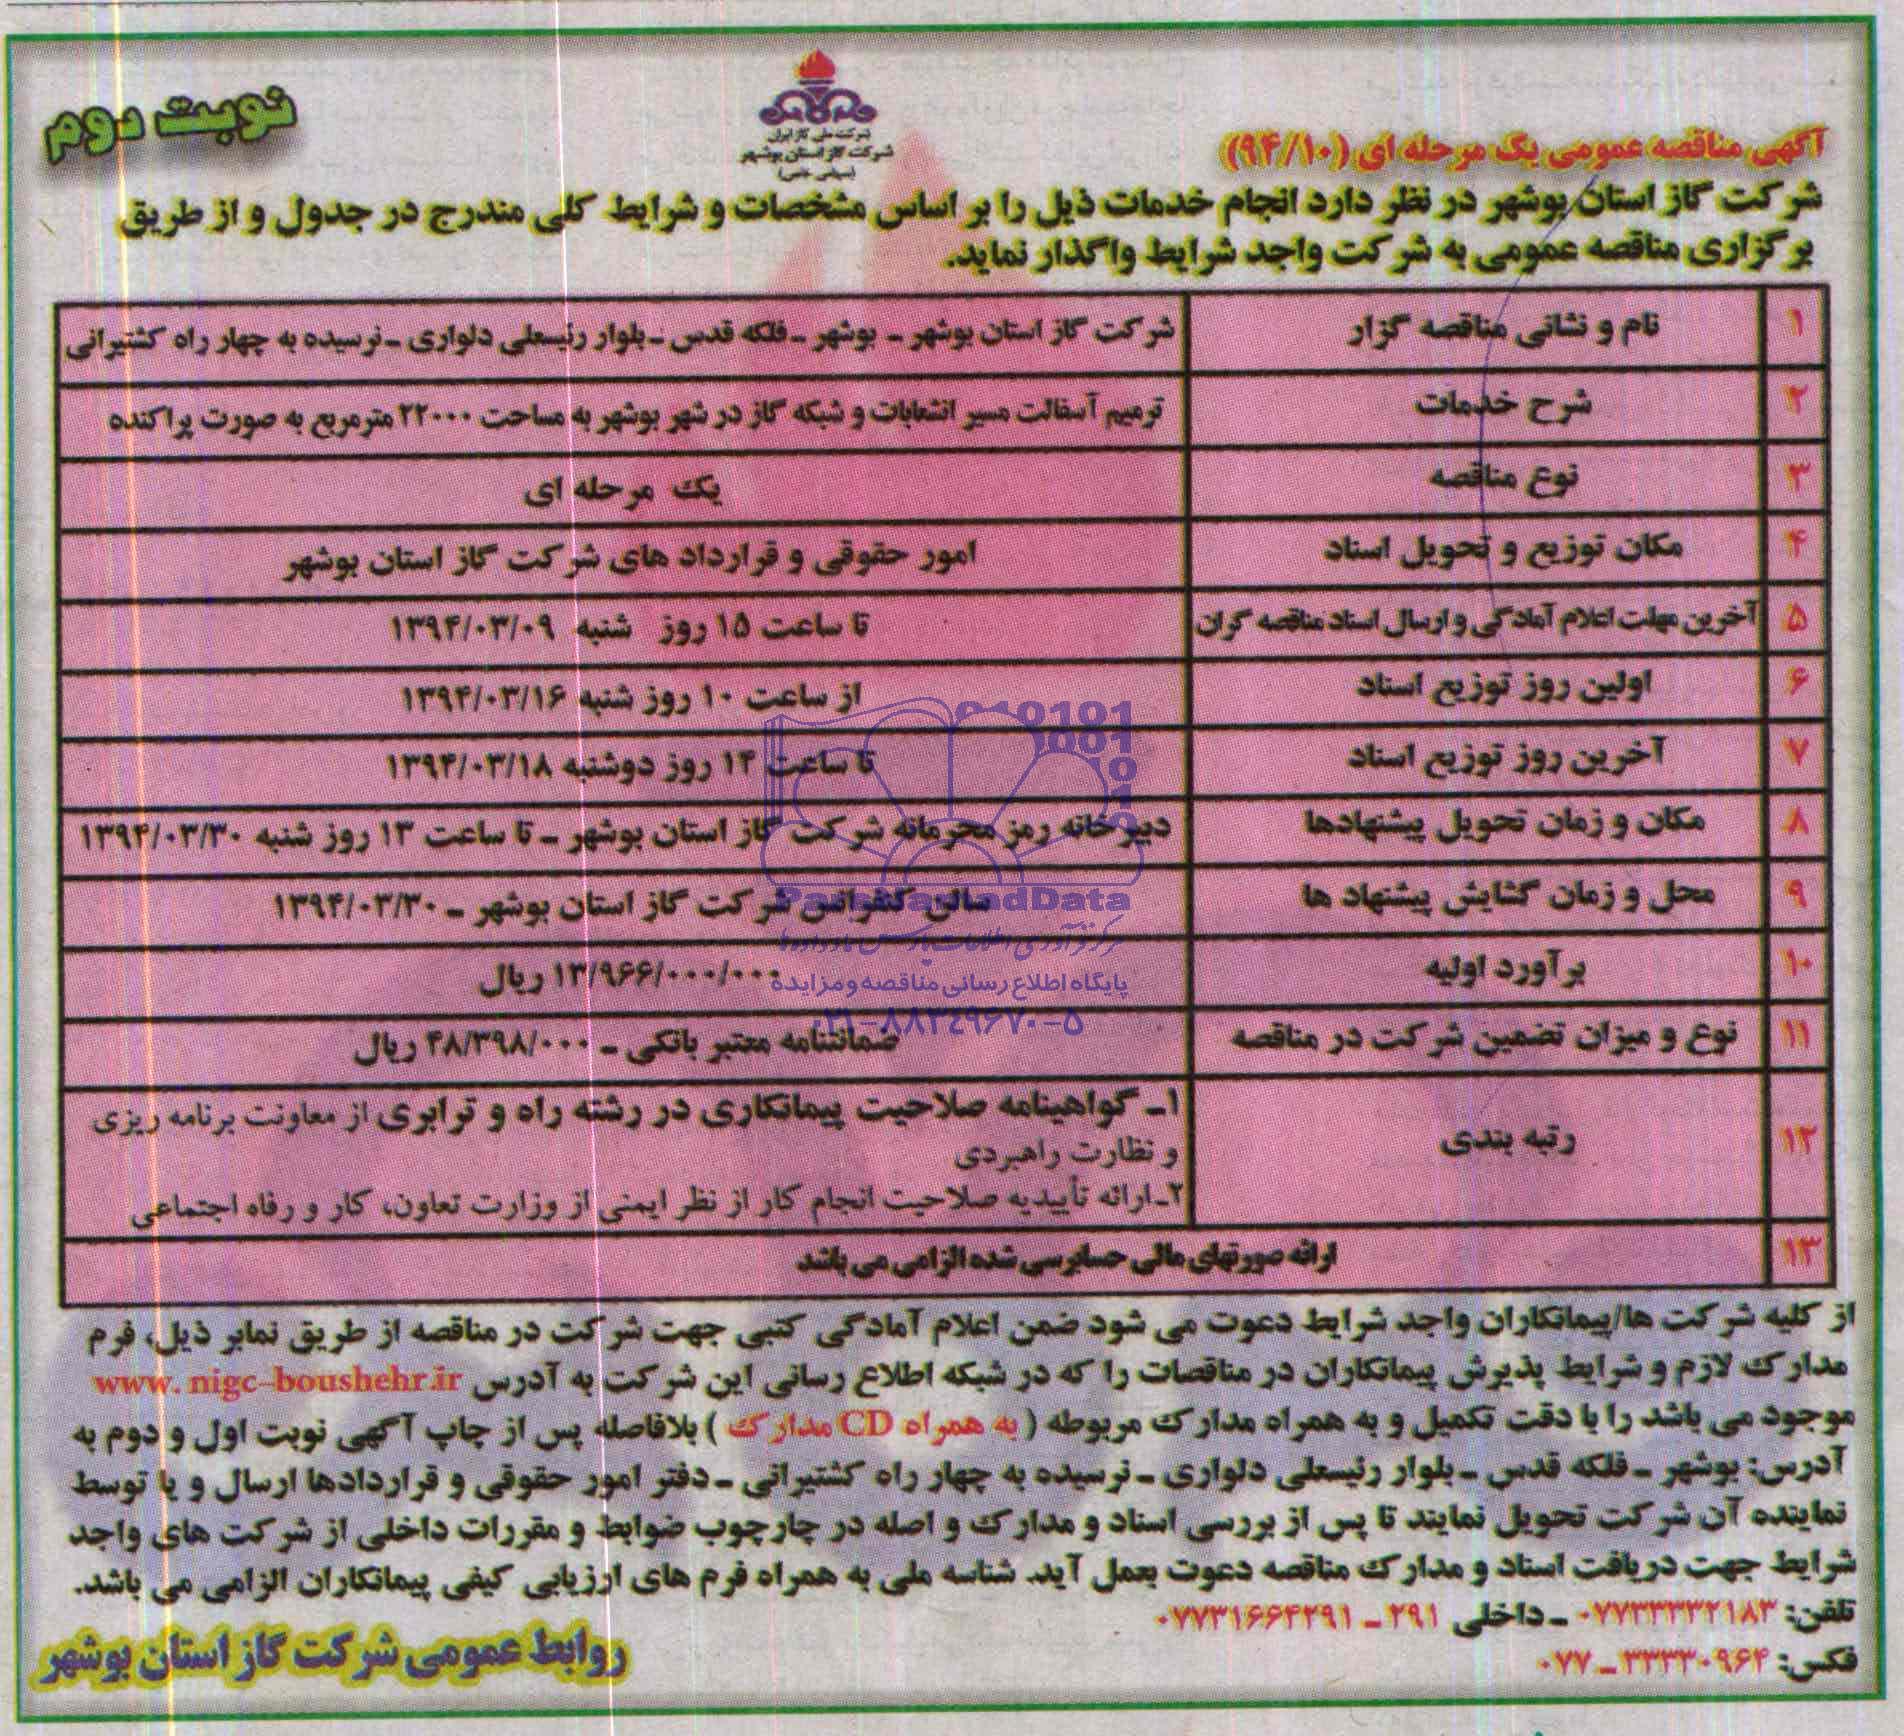 نوبت دوم
شرکت ملی گاز ایران
شرکت گاز استان بوشهر
(سهامی خاص)
آگهی مناقصه عمومی یک مرحله ای (۹۴/۱۰)
شرکت گاز استان بوشهر در نظر دارد انجام خدمات ذیل را بر اساس مشخصات و شرایط کلی مندرج در جدول و از طریق
برگزاری مناقصه عمومی به شرکت واجد شرایط واگذار نماید.
۱ نام و نشانی مناقصه گزار شرکت گاز استان بوشهر ـ بوشهر ـ فلکه قدس ـ بلوار رئیسعلی دلواری ـ نرسیده به چهار راه کشتیرانی
۲ شرح خدمات ترمیم آسفالت مسیر انشعابات و شبکه گاز در شهر بوشهر به مساحت ۲۲۰۰۰ مترمربع به صورت پراکنده
۳ نوع مناقصه یک مرحله ای
۴ مکان توزیع و تحویل اسناد امور حقوقی و قرارداد های شرکت گاز استان بوشهر
۵ آخرین مهلت اعلام آمادگی و ارسال اسناد مناقصه گران تا ساعت ۱۵ روز شنبه ۱۳۹۴/۰۳/۰۹
۶ اولین روز توزیع اسناد از ساعت ۱۰ روز شنبه ۱۳۹۴/۰۳/۱۶
۷ آخرین روز توزیع اسناد تا ساعت ۱۴ روز دوشنبه ۱۳۹۴/۰۳/۱۸
۸ مکان و زمان تحویل پیشنهادها دبیرخانه رمز محرمانه شرکت گاز استان بوشهر ـ تا ساعت ۱۳ روز شنبه ۱۳۹۴/۰۳/۳۰
۹ محل و زمان گشایش پیشنهاد ها سالن کنفرانس شرکت گاز استان بوشهر ـ ۱۳۹۴/۰۳/۳۰
۱۰ برآورد اولیه ۱۳/۹۶۶/۰۰۰/۰۰۰ ریال
۱۱ نوع و میزان تضمین شرکت در مناقصه ضمانتنامه معتبر بانکی ـ ۴۸/۳۹۸/۰۰۰ ریال
۱۲ رتبه بندی ۱ـ گواهینامه صلاحیت پیمانکاری در رشته راه و ترابری از معاونت برنامه ریزی
و نظارت راهبردی
۲ـ ارائه تأییدیه صلاحیت انجام کار از نظر ایمنی از وزارت تعاون، کار و رفاه اجتماعی
۱۳ ارائه صورتهای مالی حسابرسی شده الزامی می باشد
ParsNamadData
مرکز فرآوری اطلاعات پارس نماد داده ها
پایگاه اطلاع رسانی مناقصه و مزایده
۰۲۱-۸۸۳۴۹۶۷۰-۵
از کلیه شرکت ها/پیمانکاران واجد شرایط دعوت می شود ضمن اعلام آمادگی کتبی جهت شرکت در مناقصه از طریق نمابر ذیل، فرم
مدارک لازم و شرایط پذیرش پیمانکاران در مناقصات را که در شبکه اطلاع رسانی این شرکت به آدرس www. nigc-boushehr.ir
موجود می باشد را با دقت تکمیل و به همراه مدارک مربوطه ( به همراه CD مدارک ) بلافاصله پس از چاپ آگهی نوبت اول و دوم به
آدرس: بوشهر ـ فلکه قدس ـ بلوار رئیسعلی دلواری ـ نرسیده به چهار راه کشتیرانی ـ دفتر امور حقوقی و قراردادها ارسال و یا توسط
نماینده آن شرکت تحویل نمایند تا پس از بررسی اسناد و مدارک و اصله در چارچوب ضوابط و مقررات داخلی از شرکت های واجد
شرایط جهت دریافت اسناد و مدارک مناقصه دعوت بعمل آید. شناسه ملی به همراه فرم های ارزیابی کیفی پیمانکاران الزامی می باشد.
تلفن: ۰۷۷۳۳۳۳۲۱۸۳ ـ داخلی ۲۹۱ ـ ۰۷۷۳۱۶۶۴۲۹۱
فکس: ۳۳۳۳۰۹۶۴ ـ ۰۷۷
روابط عمومی شرکت گاز استان بوشهر